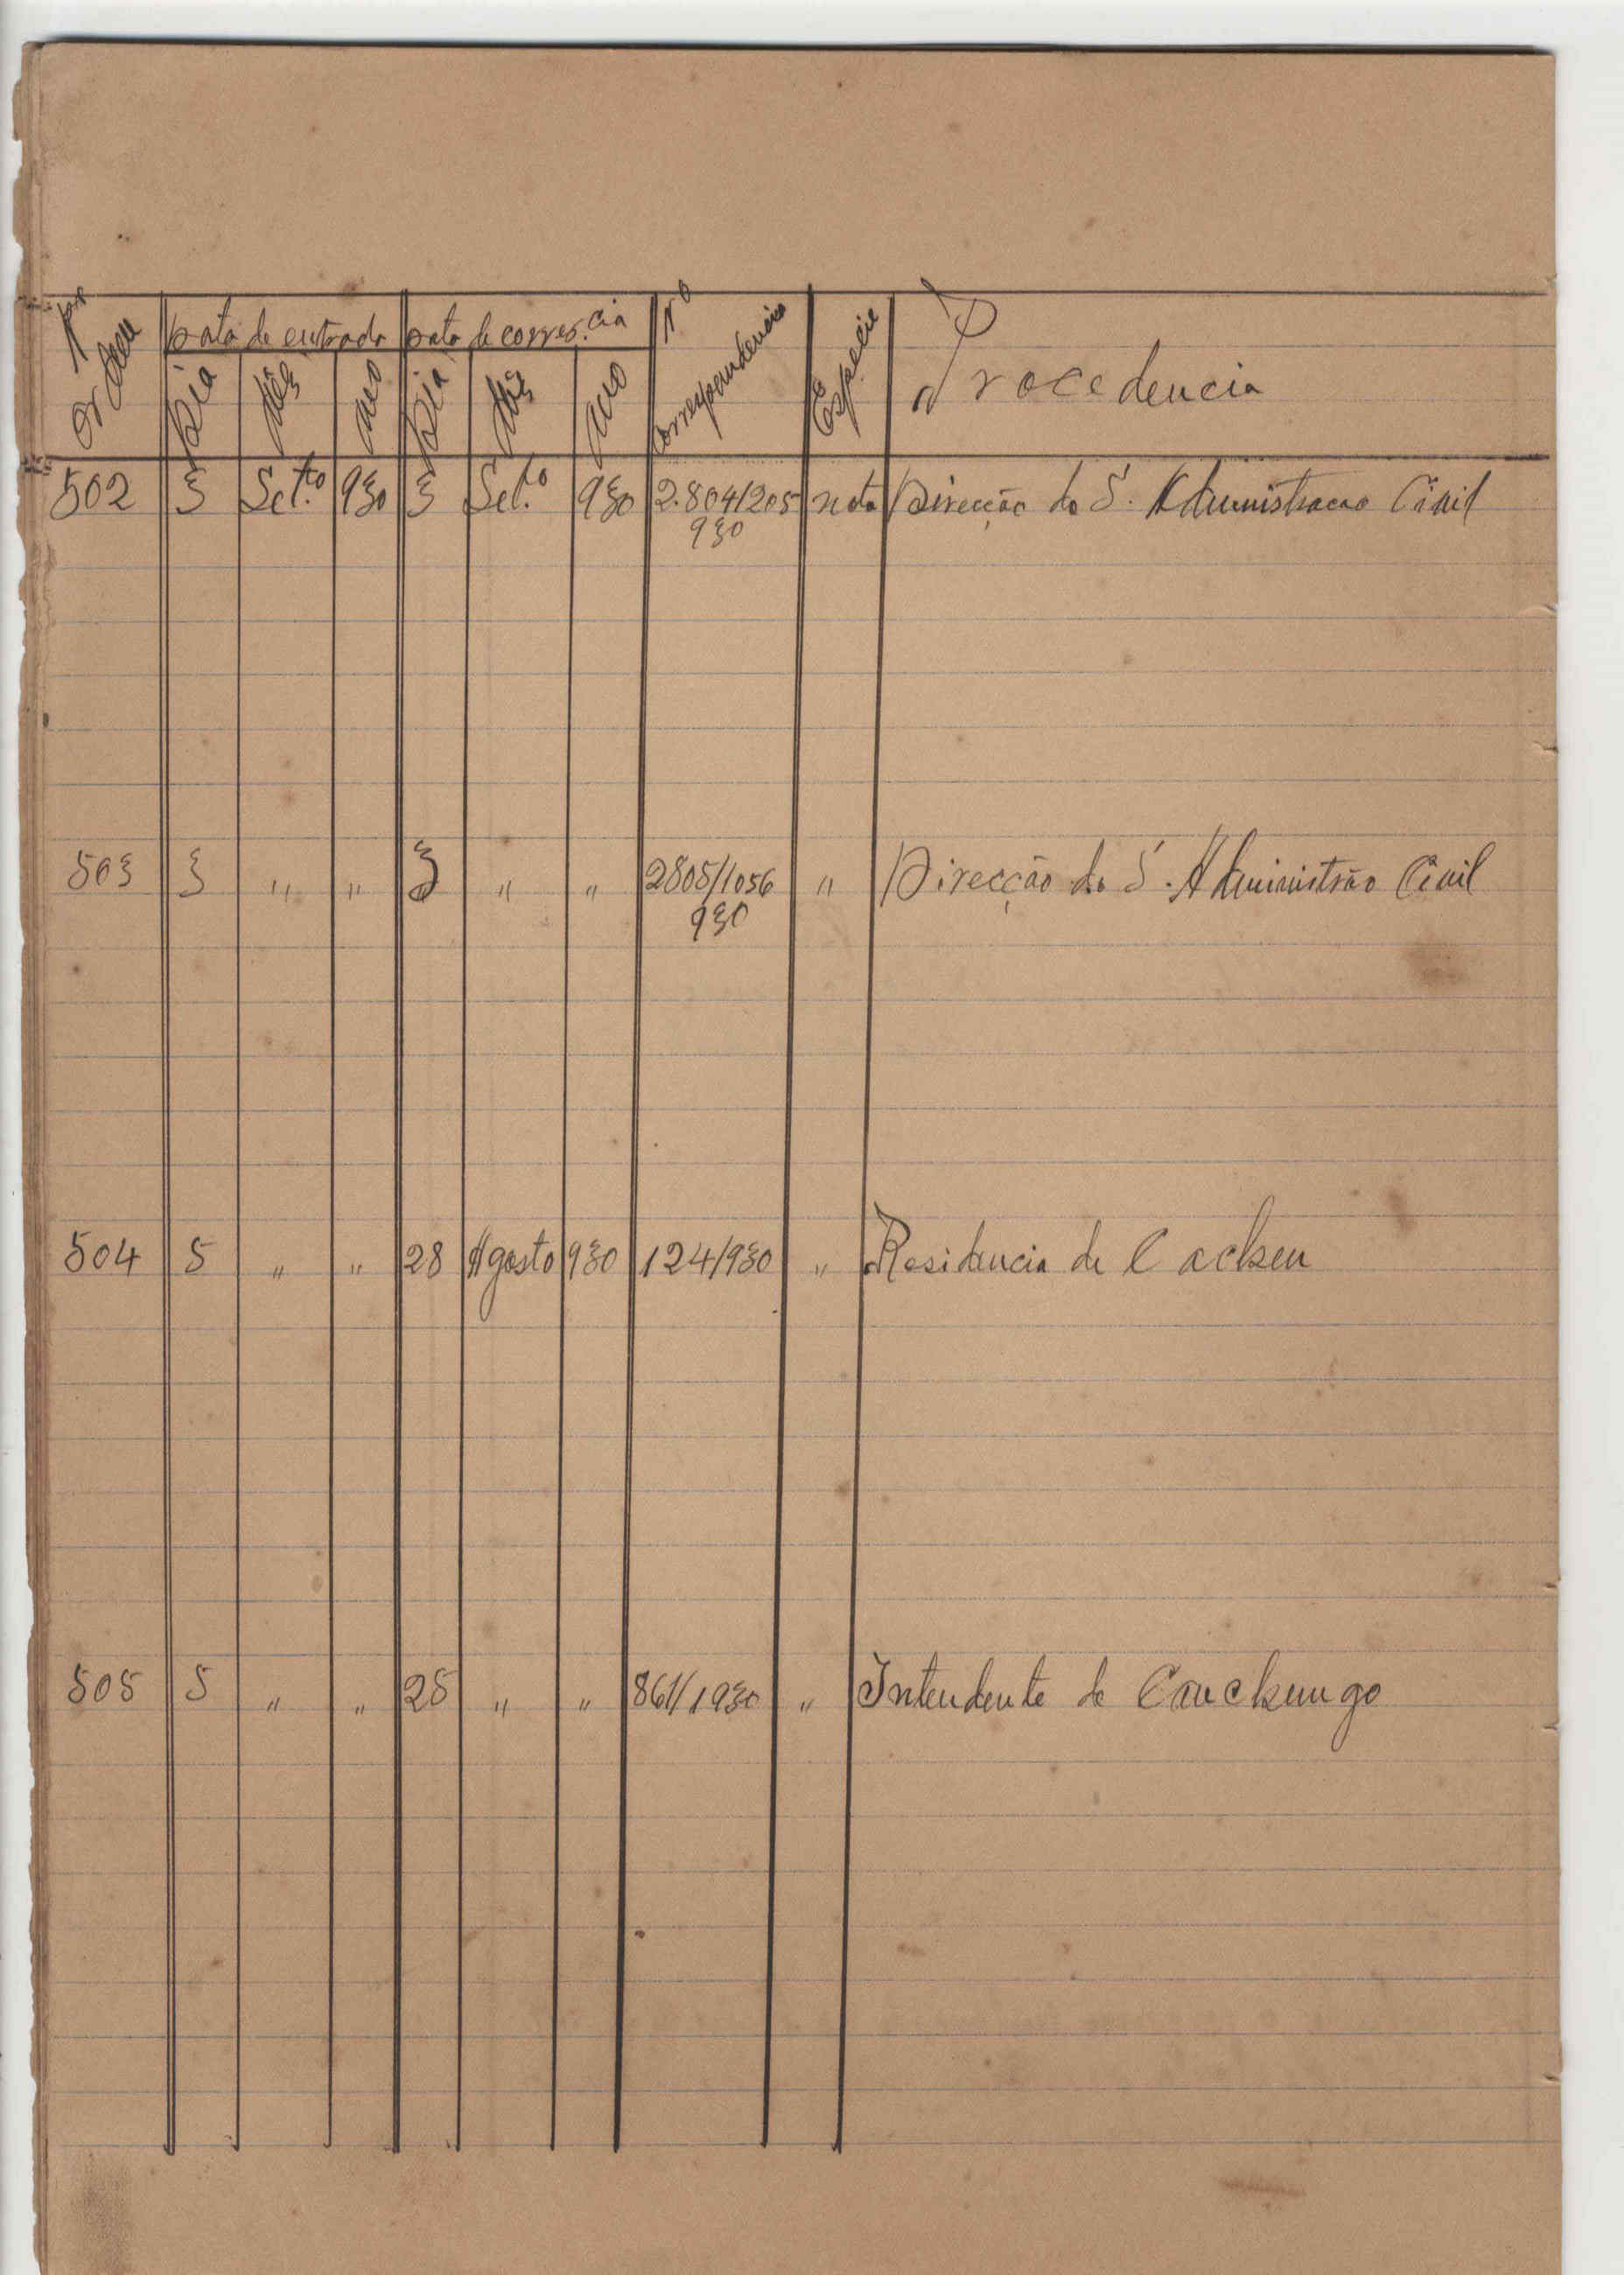 Nº Ordem | Data de entrada | Data de corres.cia | Nº correspondencia | Especie | Procedencia
Dia | Mês | Ano | Dia | Mês | Ano
502 | 3 | Set.º | 930 | 3 | Set.º | 930 | 2.804/205 | nota | Direcção do S. Administracao Civil
930
503 | 3 | " | " | 3 | " | " | 2805/1056 | " | Direcção do S. Administrão Civil
930
504 | 5 | " | " | 28 | Agosto | 930 | 124/930 | " | Residencia de Cacheu
505 | 5 | " | " | 25 | " | " | 861/1930 | " | Intendente de Canchungo